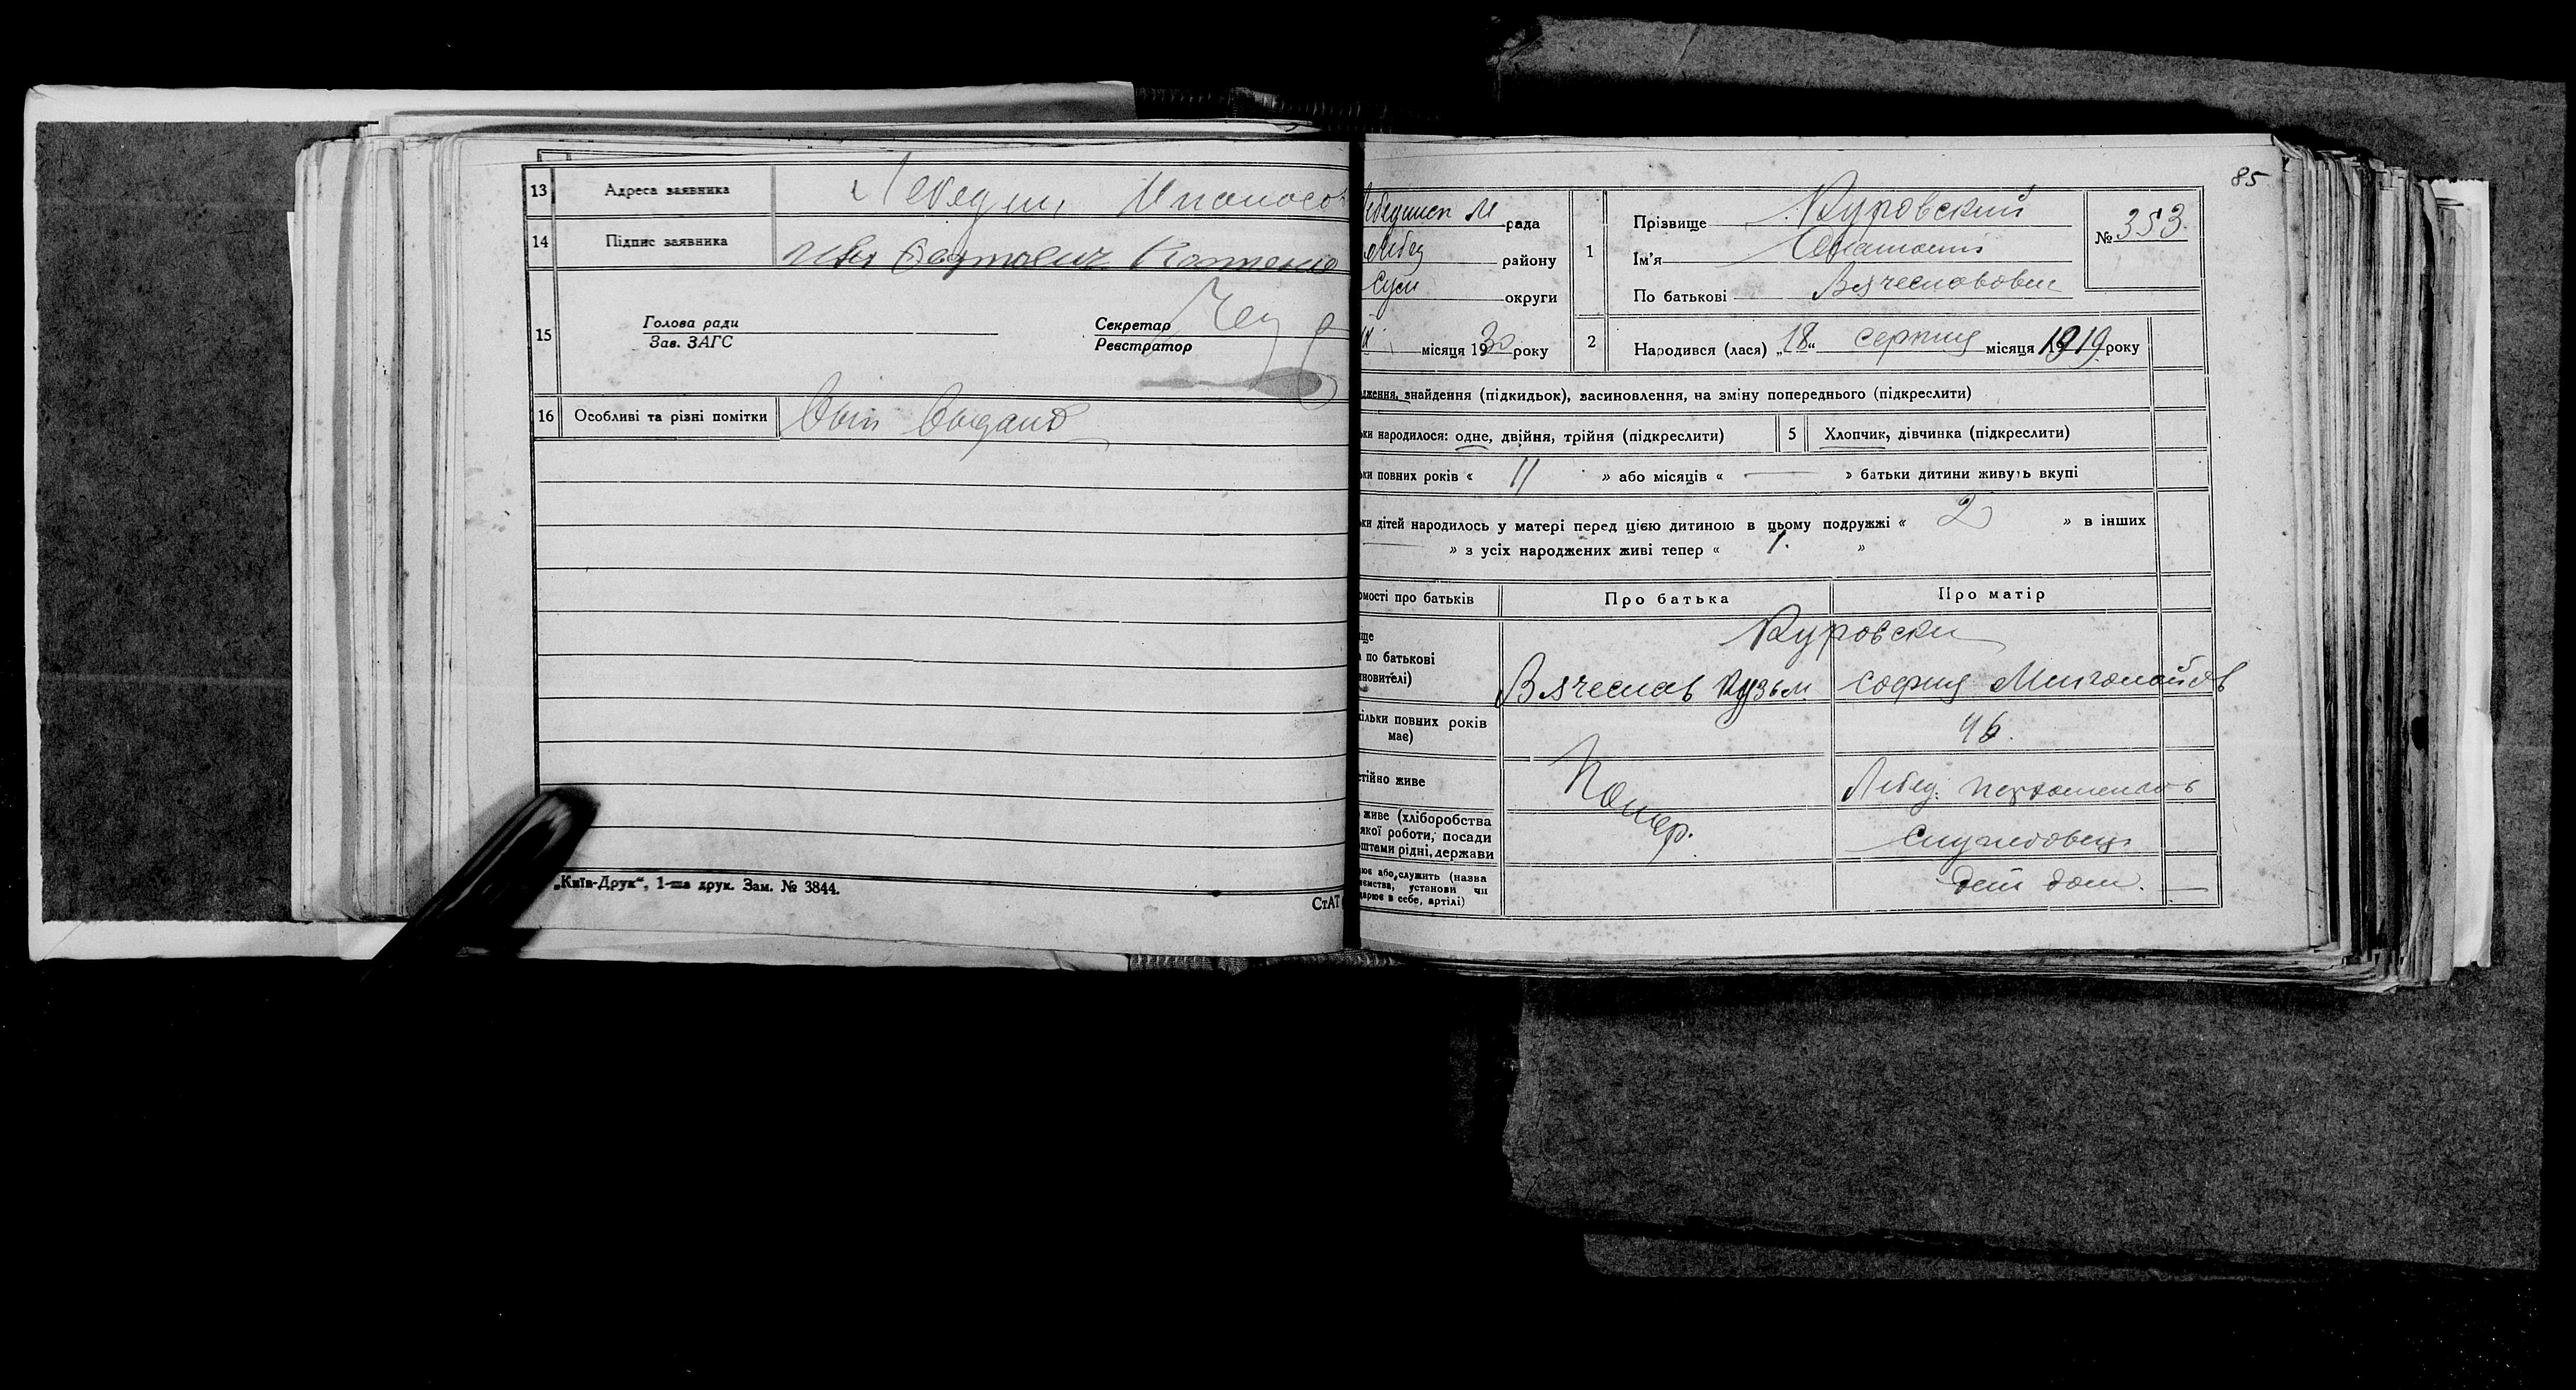 13 Адреса заявника Лебедин,
14 Підпис заявника
15 Голова ради Зав. ЗАГС Секретар Реєстратор
16 Особливі та різні помітки
„Київ-Друк“, 1-ша друк. Зам. № 3844.
СтАТ
85
рада
Лебед району
Суми округи
місяця 1930 року
1 Прізвище Куровский
Ім'я Анатолій
По батькові Вячеславович
№ 353.
2 Народився (лася) „18“ серпня місяця 1919 року
дження, знайдення (підкидьок), васиновлення, на зміну попереднього (підкреслити)
ки народилося: одне, двійня, трійня (підкреслити) 5 Хлопчик, дівчинка (підкреслити)
ки повних років « 11 » або місяців « — » батьки дитини живуть вкупі
ки дітей народилось у матері перед цією дитиною в цьому подружжі « 2 » в інших
» з усіх народжених живі тепер « 1. »
омості про батьків Про батька Про матір
ще
по батькові
новителі)
Куровски
Вячеслав Кузьм София
кільки повних років має) 46.
тійно живе Помер. Лебед.
живе (хліборобства
якої роботи, посади
штами рідні, держави
служебовець
ює або служить (назва
ємства, установи чи
дарює в себе, артілі)
Дет дом.